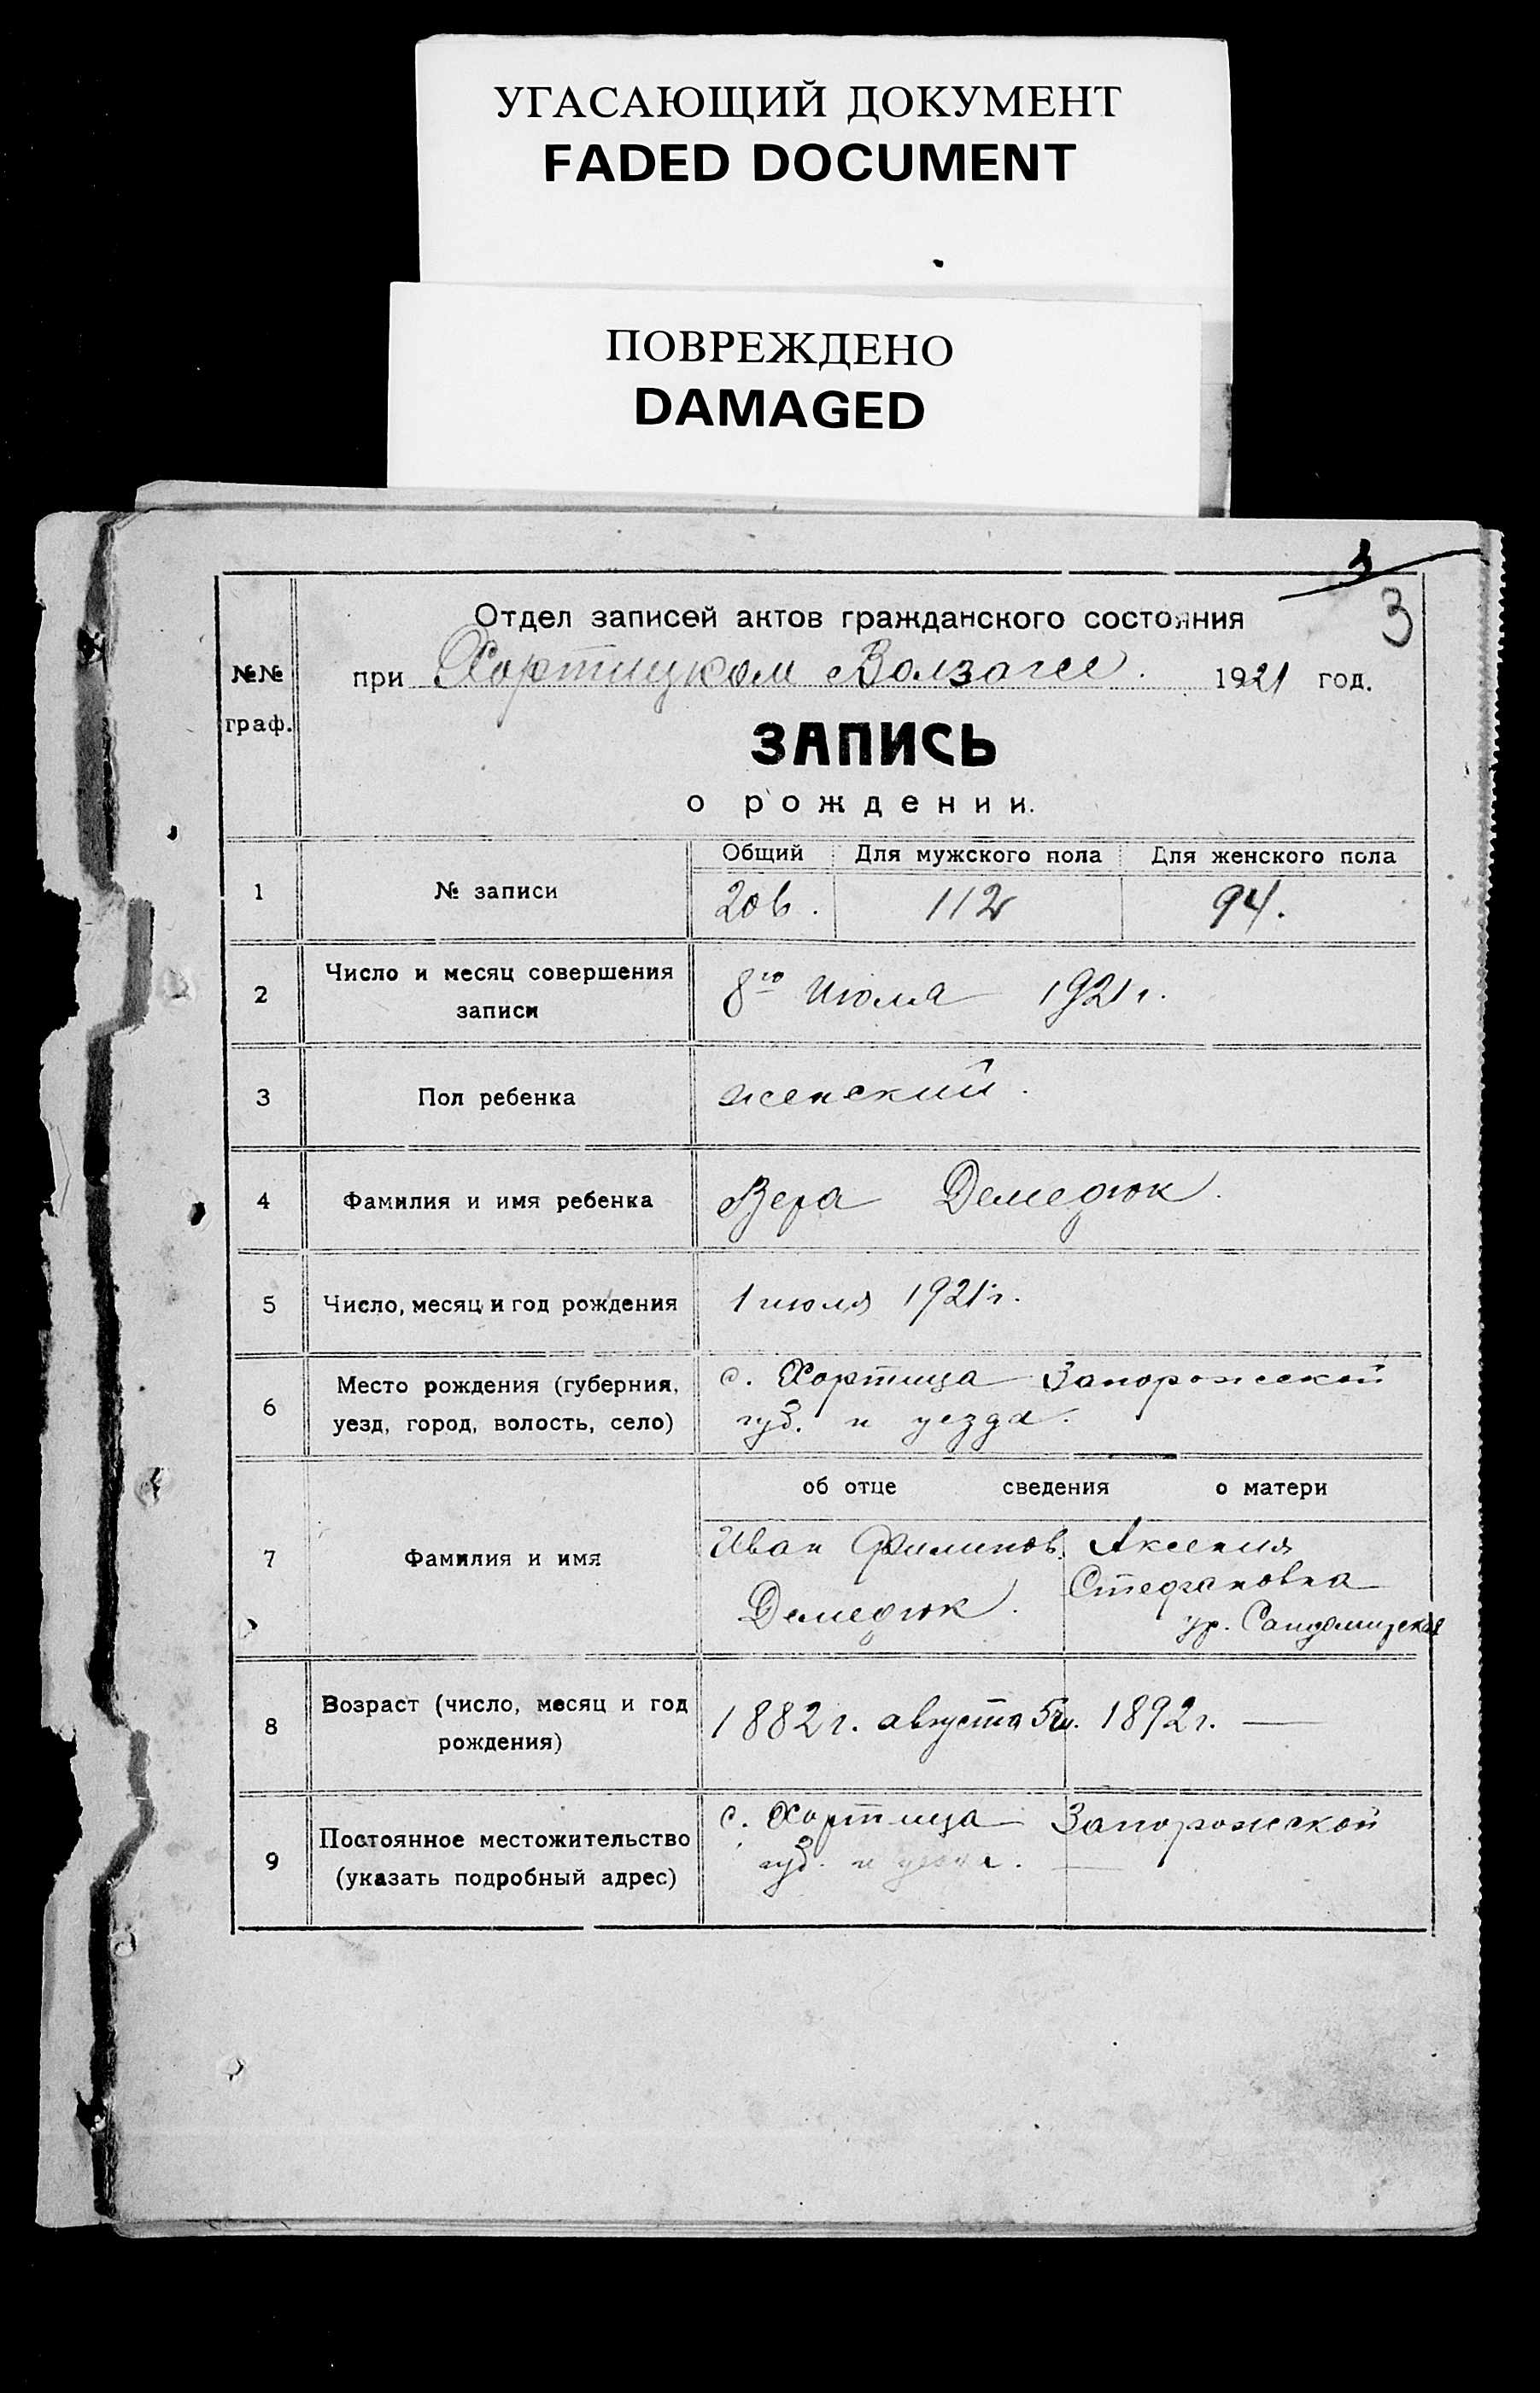 УГАСАЮЩИЙ ДОКУМЕНТ
FADED DOCUMENT
ПОВРЕЖДЕНО
DAMAGED
1
3
№№ граф.
Отдел записей актов гражданского состояния
при Хортицком Волзагсе. 1921 год.
ЗАПИСЬ
о рождении.
Общий Для мужского пола Для женского пола
1 № записи 206. 112 94.
2 Число и месяц совершения
записи
8го Июля 1921 г.
3 Пол ребенка женский.
4 Фамилия и имя ребенка Вера Демедюк.
5 Число, месяц и год рождения 1 июля 1921 г.
6 Место рождения (губерния,
уезд, город, волость, село)
с. Хортица Запорожской
губ. и уезда.
об отце сведения о матери
7 Фамилия и имя
Иван Филипов.
Демедюк.
Аксения
Стефановна
ур.
8 Возраст (число, месяц и год
рождения)
1882 г. августа 5 1892 г. —
9 Постоянное местожительство
(указать подробный адрес)
с. Хортица Запорожской
губ. и уезда. —